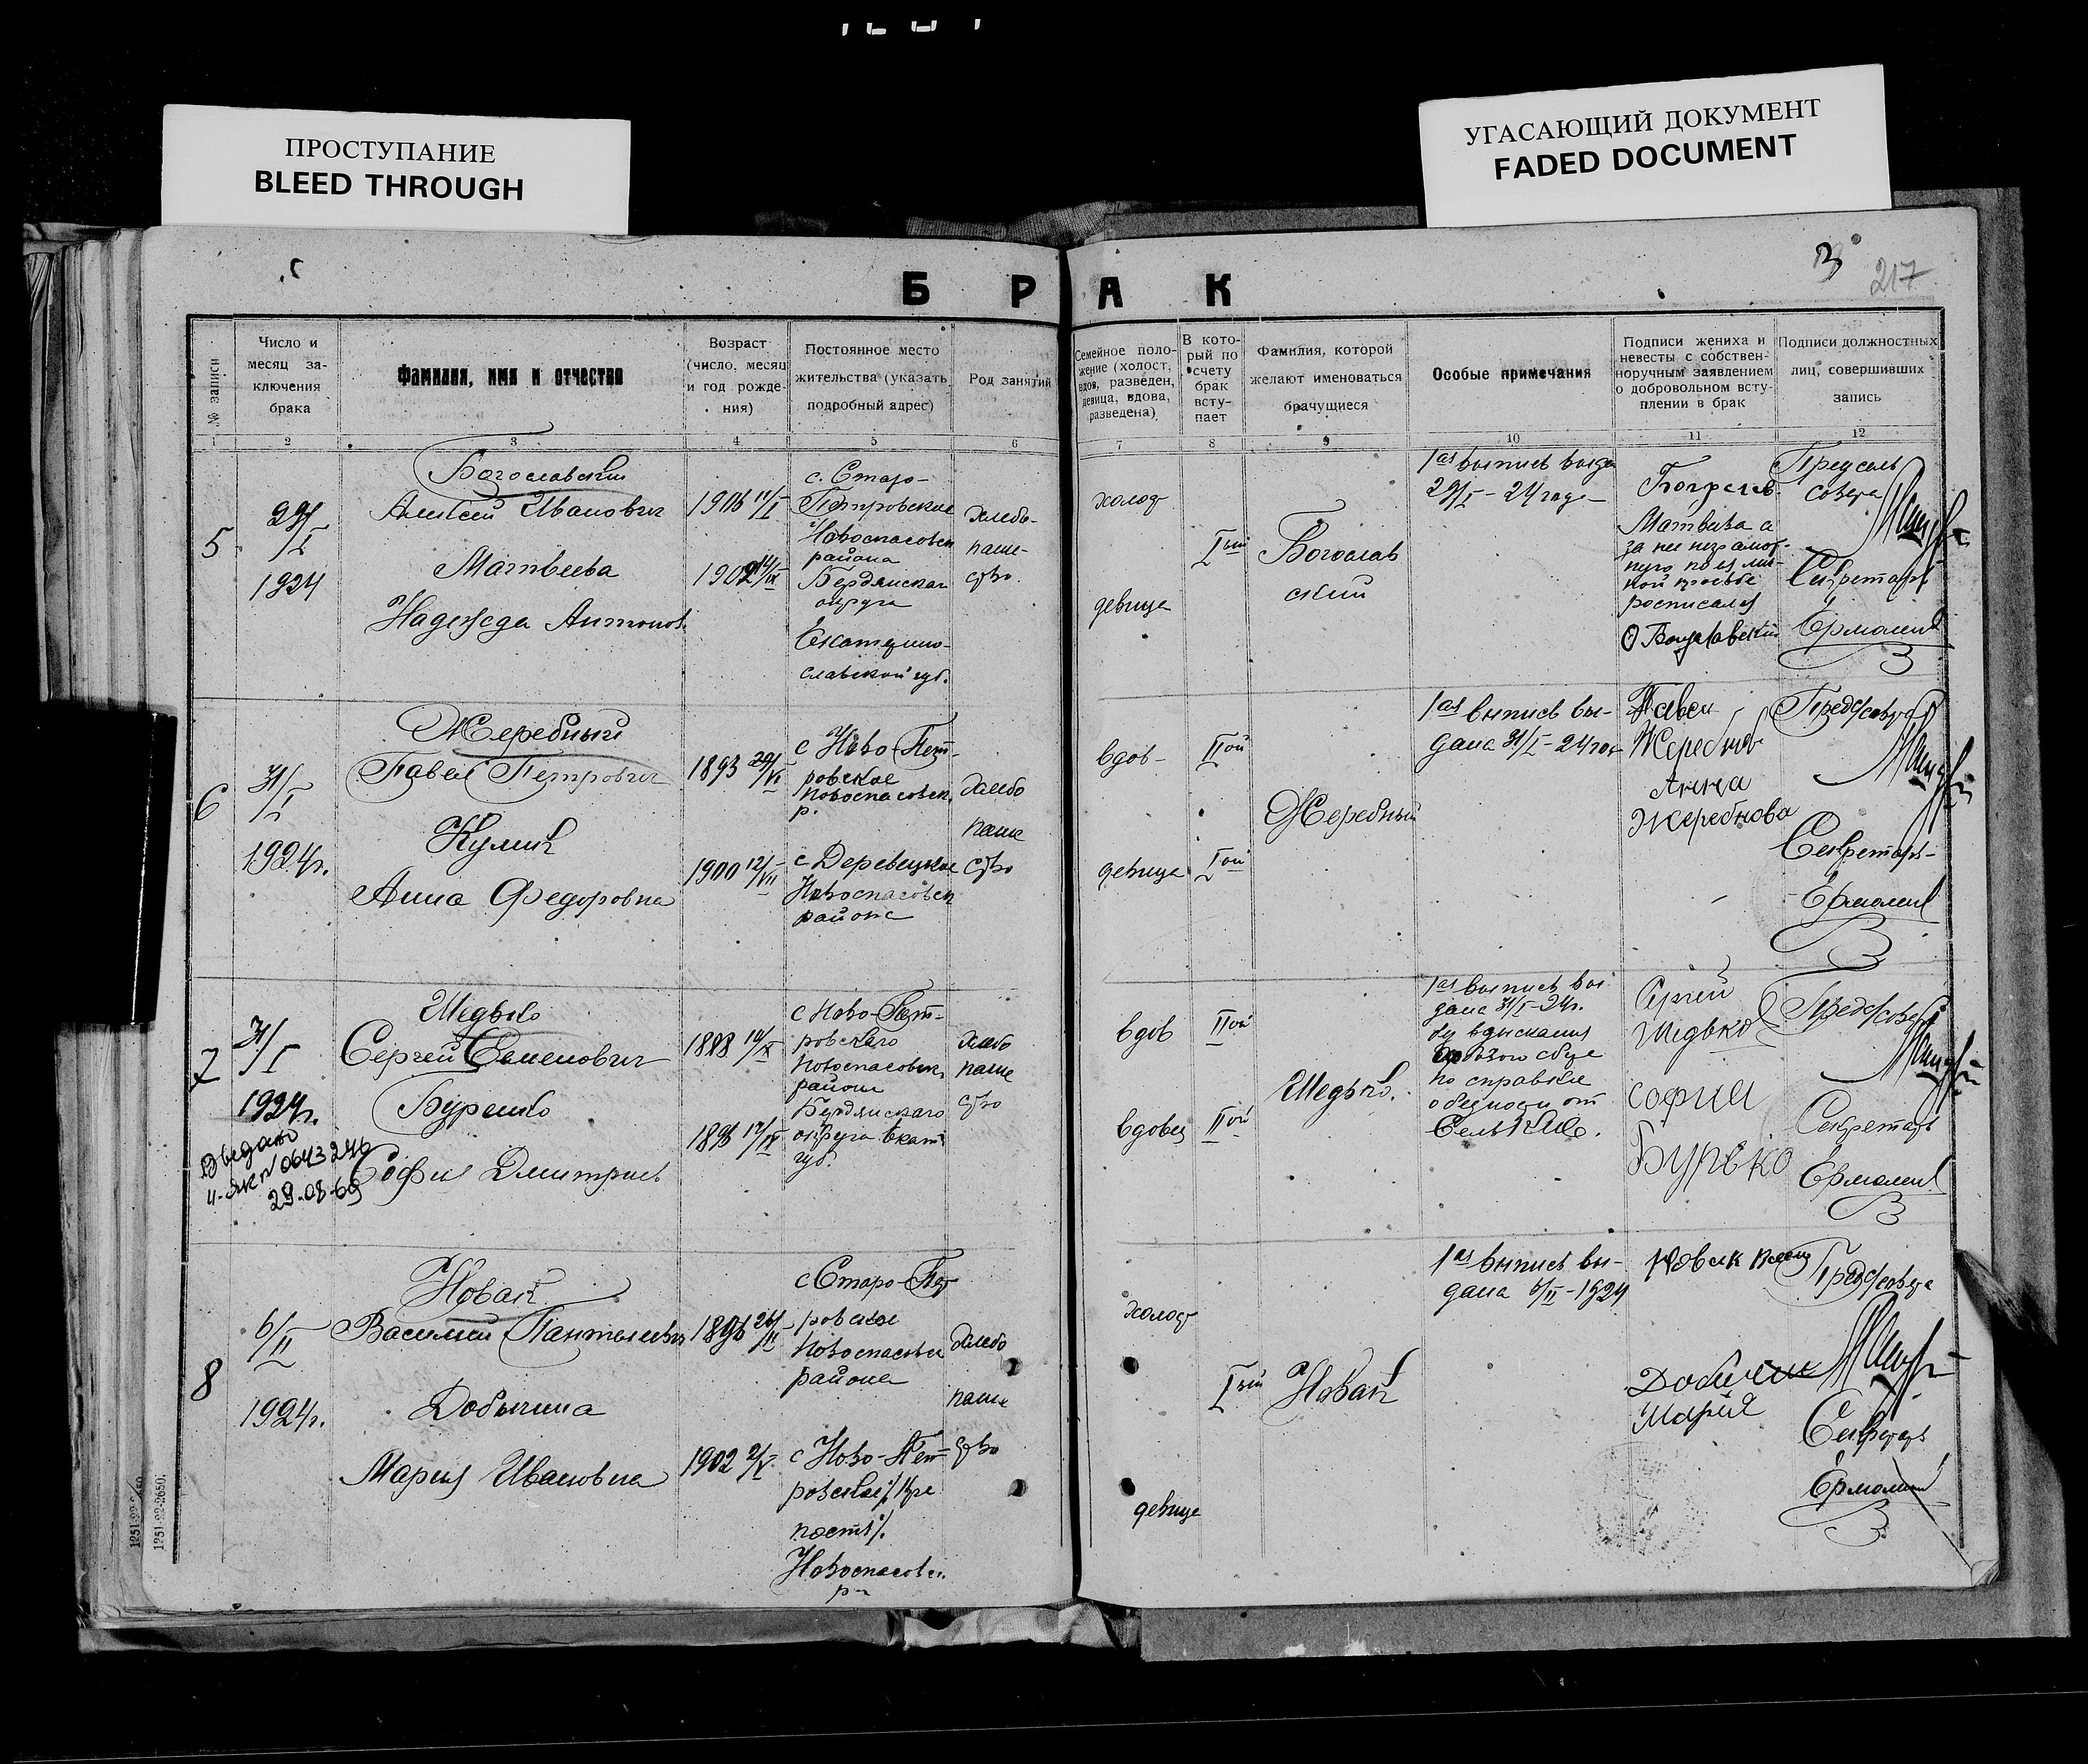 ПРОСТУПАНИЕ
BLEED THROUGH
УГАСАЮЩИЙ ДОКУМЕНТ
FADED DOCUMENT
3
217
Б Р А К
№ записи
Число и
месяц за-
ключения
брака
Фамилия, имя и отчество
Возраст
(число, месяц
и год рожде-
ния)
Постоянное место
жительства (указать
подробный адрес)
Род занятий
Семейное поло-
жение (холост,
вдов, разведен,
девица, вдова,
разведена)
В кото-
рый по
счету
брак
всту-
пает
Фамилия, которой
желают именоваться
брачущиеся
Особые примечания
Подписи жениха и
невесты с собствен-
норучным заявлением
о добровольном всту-
плении в брак
Подписи должностных
лиц, совершивших
запись
1 2 3 4 5 6 7 8 9 10 11 12
5
29/I
1924
Богославский
Алексей Иванович
Матвеева
Надежда Антонов.
1906 11/I
1902 14/IX
с. Старо-
Петровское
Новоспасовск
района
Бердянскаго
округа
Екатерино-
славской губ.
хлебо-
паше-
ство.
холост
девица
Iый
Богослав
ский
1ая выпись выда
29/I - 24 года
Матвиева а
за нее неграмот-
ную по ея лич-
ной прозьбе
росписался
Богуславский
Предсель
совета
Секретарь
Ермолин
6
31/I
1924г.
Жеребный
Павел Петрович
Кулик
Анна Федоровна
1893 29/VI
1900 12/VII
с Ново-Пет-
ровское
Новоспасовск.
р.
с Деревецкое
Новоспасовск
района
хлебо
паше
ство
вдов-
девица
IIой
Iой
Жеребный
1ая выпись вы-
дана 31/I - 24 год
Павел
Жеребнов
Анна
Жеребнова
Предс/совета
Секретарь-
Ермолин
7
31/I
1924г.
29-08-69
Шедько
Сергей Семенович
Бурешко
Софья Дмитриев
1888 14/X
1896 17/IX
с Ново-Пет-
ровскаго
Новоспасовск.
района
Бердянскаго
округа Екат
губ.
хлебо
паше
ство
вдов
вдовец
IIой
IIой
Шедько.
1ая выпись вы
дана 31/I - 24г.
по справке
о бедности от
Сергей
Шедько
софии
Бурько
Предс/совета
Секретарь
Ермолин
8
6/II
1924г.
Новак
Василий Пантелеевич
Добычина
Мария Ивановна
1896 24/II
1902 2/V
с Старо-Пет
ровское
Новоспасовск
района
с Ново-Пет-
ровское /Кре
пость/.
Новоспасовск.
р-н
хлебо
паше
ство
холост
девица
Iый
Новак
1ая выпись вы-
дана 6/II - 1924
Новак
Мария
Предс/совета
Секретарь
Ермолин
1251-22-2650.